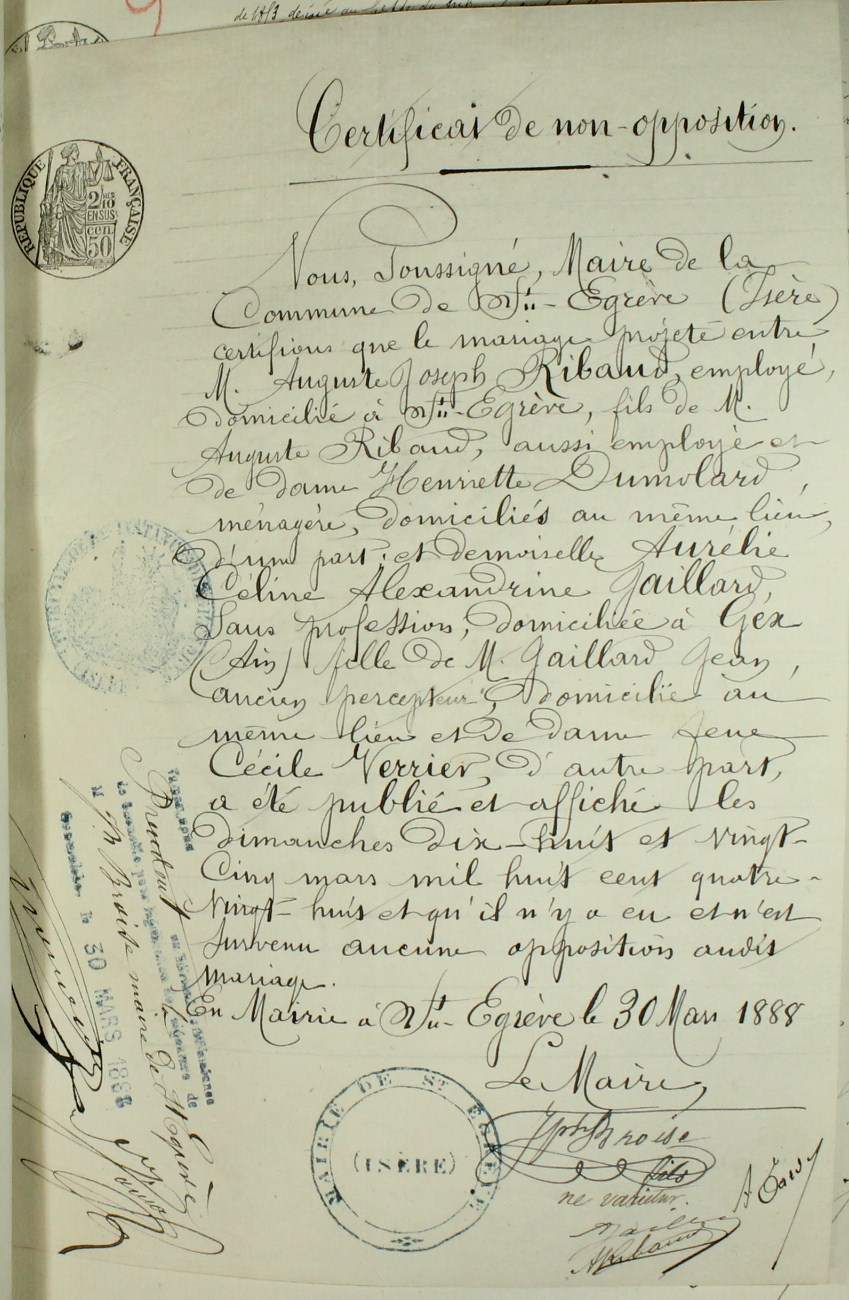 Certificat de non-opposition.
REPUBLIQUE FRANÇAISE
2/10
EN SUS
50
cen
Nous, Soussigné, Maire de la
Commune de St-Egrève (Isère)
certifions que le mariage projeté entre
M. Auguste Joseph Ribaud, employé,
domicilié à St-Egrève, fils de M.
Auguste Ribaud, aussi employé et
de dame Henriette Dumolard,
ménagère, domiciliés au même lieu,
d'une part; et demoiselle Aurélie
Céline Alexandrine Gaillard,
sans profession, domiciliée à Gex
(Ain) fille de M. Gaillard Jean,
ancien percepteur, domicilié au
même lieu et de dame feue
Cécile Verrier, d'autre part,
a été publié et affiché les
dimanches dix-huit et vingt-
cinq mars mil huit cent quatre-
vingt-huit et qu'il n'y a eu et n'est
survenu aucune opposition audit
mariage.
En Mairie à St-Egrève le 30 Mars 1888
Le Maire,
Jph Broise
fils
ne varietur.
ARibaud
MAIRIE DE ST EGRÈVE
(ISÈRE)
Jph Broise maire de St Egrève
30 MARS 1888